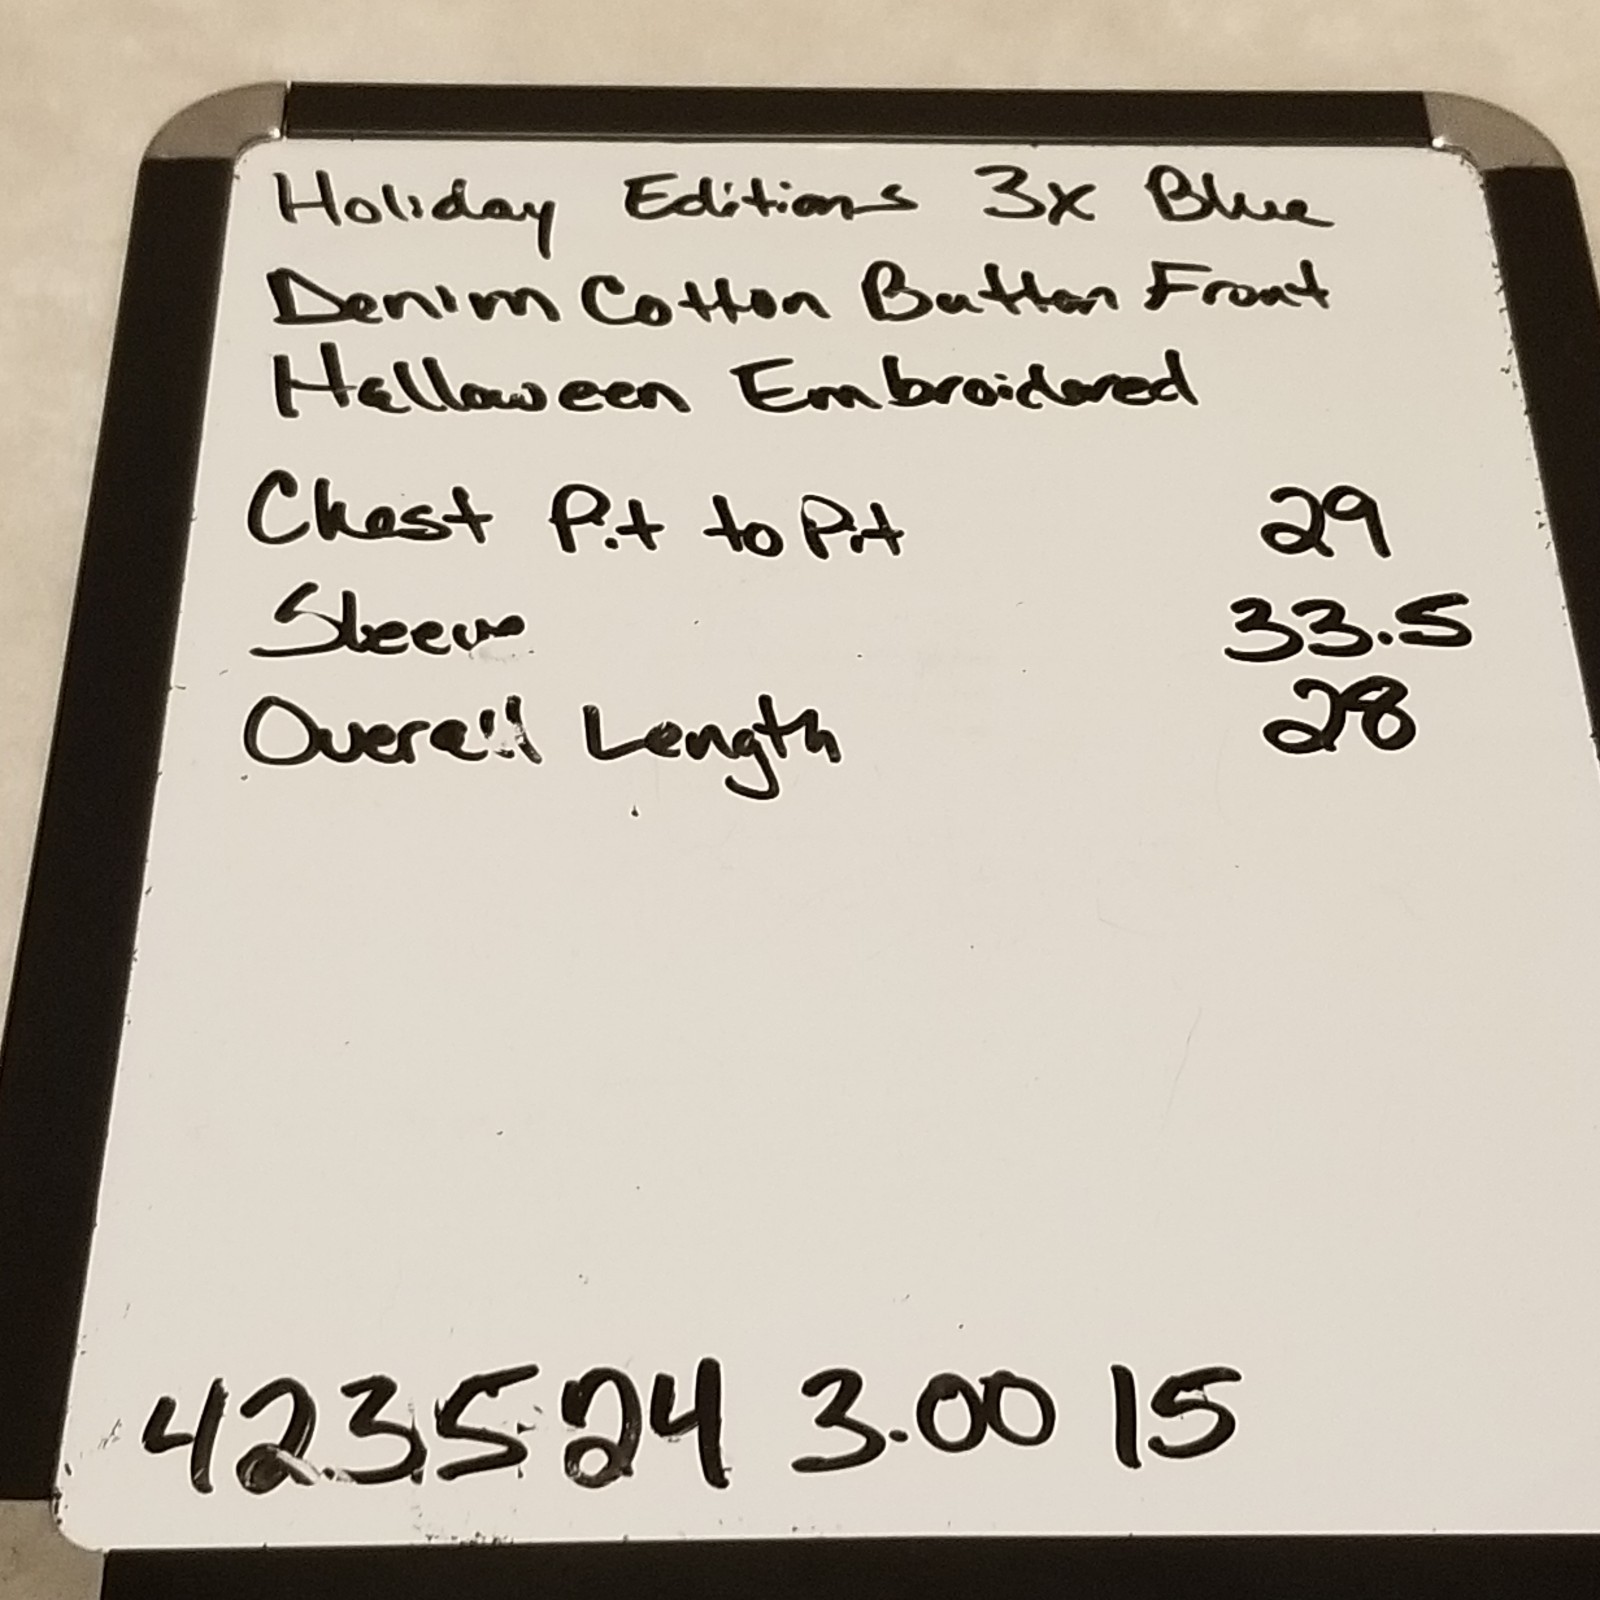 Holiday Editions 3x Blue
Denim Cotton Button Front
Halloween Embroidered
Chest Pit to Pit 29
Sleeve 33.5
Overall Length 28
423524 3.00 15